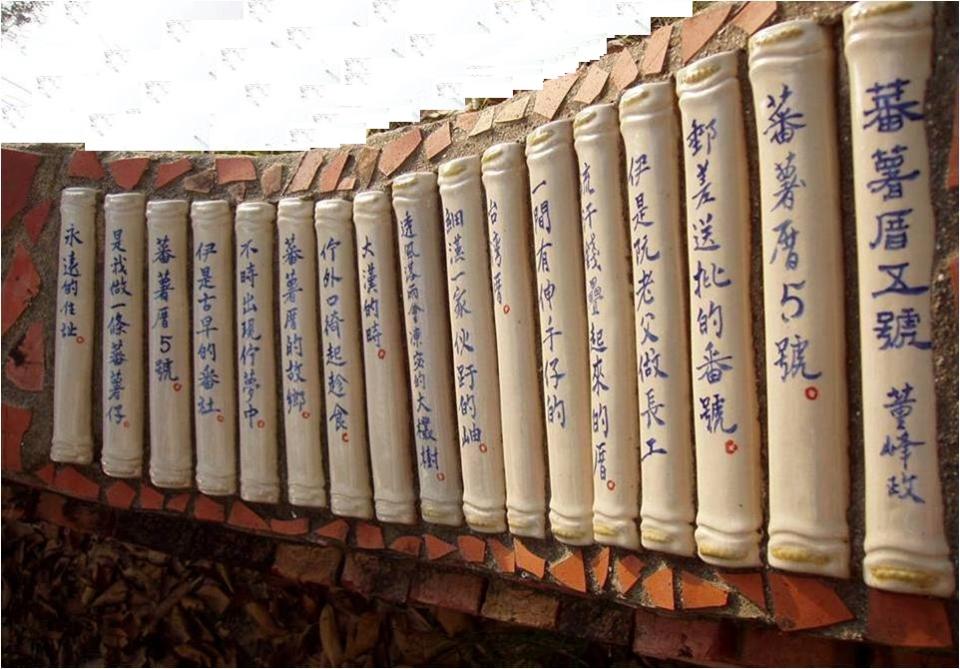 蕃薯厝五號 董峰政
蕃薯厝5號。
郵差送批的番號。
伊是阮老父做長工
流汗錢疊起來的厝。
一間有伸手仔的
台灣厝。
細漢一家伙迌的岫。
透風落雨會凍安的大欉樹。
大漢的時。
佇外口倚起趁食。
蕃薯厝的故鄉。
不時出現佇夢中。
伊是古早的番社。
蕃薯厝5號。
是我做一條蕃薯仔。
永遠的住址。